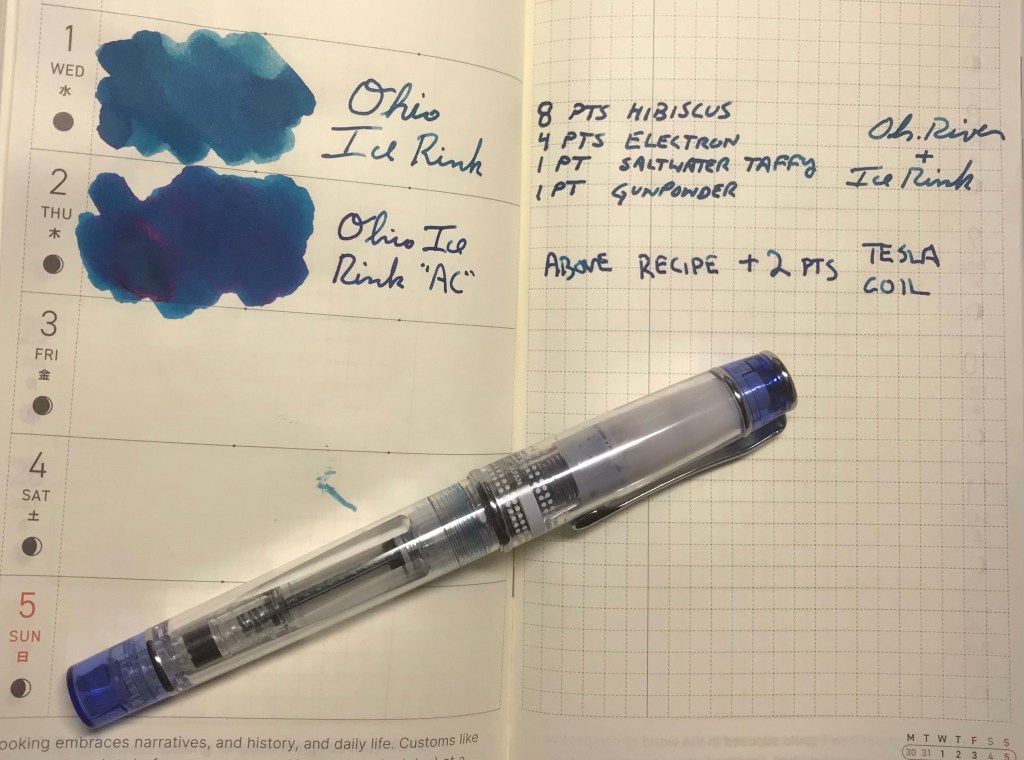 1
WED
水
Ohio
Ice Rink
2
THU
木
Ohio Ice
Rink "AC"
3
FRI
金
4
SAT
土
5
SUN
日
ooking embraces narratives, and history, and daily life. Customs like
8 PTS HIBISCUS
4 PTS ELECTRON
1 PT SALTWATER TAFFY
1 PT GUNPOWDER
Oh. River
+
Ice Rink
ABOVE RECIPE + 2 PTS TESLA
COIL
M T W T F S S
30 31 1 2 3 4 5